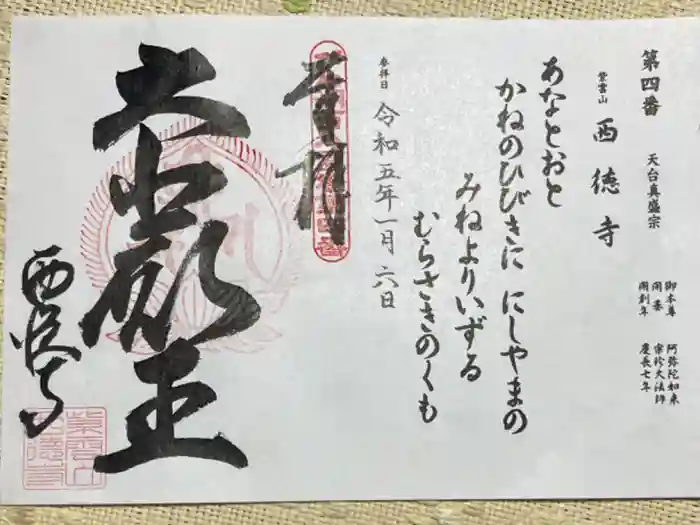 第四番 天台真盛宗
紫雲山 西徳寺
御本尊 阿弥陀如来
開基 宗珍大法師
開創年 慶長七年
あなとおと
かねのひびきに にしやまの
みねよりいずる
むらさきのくも
参拝日 令和五年一月六日
奉拝
西徳寺